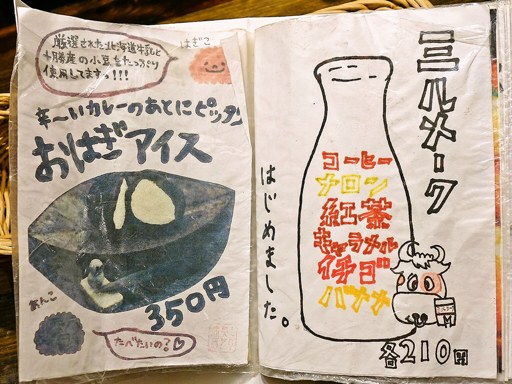 厳選された北海道牛乳と
十勝産の小豆をたっぷり
使用してます!!!
はぎこ
辛〜いカレーのあとにピッタン
おはぎアイス
350円
あんこ
たべたいの?♡
ミルメーク
コーヒー
メロン
紅茶
キャラメル
イチゴ
バナナ
はじめました。
各210円